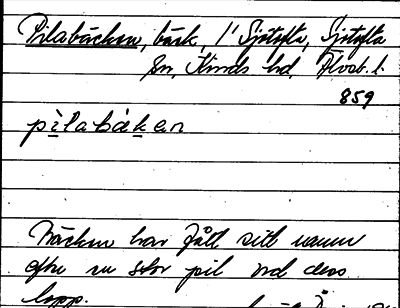 Pilabäcken, bäck, i Sjötofta, Sjötofta
sn, Kinds hd, Älvsb. l.
859
pìlabäkan
Bäcken har fått sitt namn
efter en stor pil vid dess
lopp.